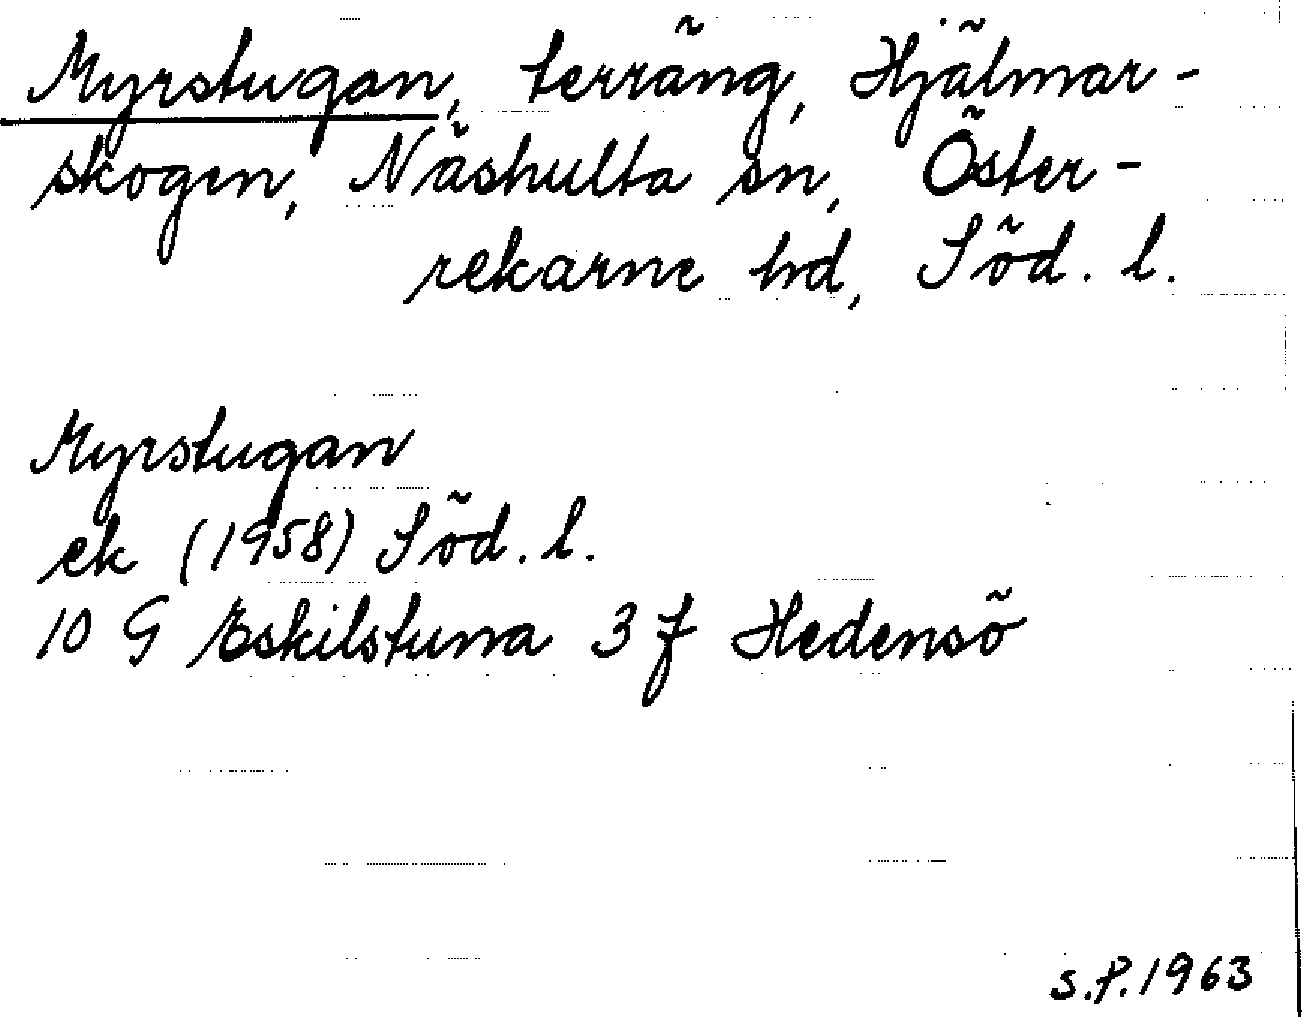 Myrstugan, terräng, Hjälmar-
skogen, Näshulta sn, Öster-
rekarne hd, Söd. l.
Myrstugan
ek (1958) Söd. l.
10 G Eskilstuna 3 f Hedensö
S.P. 1963